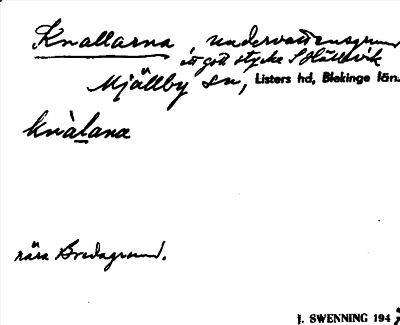 Knallarna undervattensgrund
ett gott stycke S Hällevik
Mjällby sn, Listers hd, Blekinge län.
knàlana
nära Bredagrund.
J. SWENNING 194